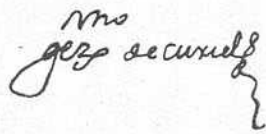 nmo
gero decuriel